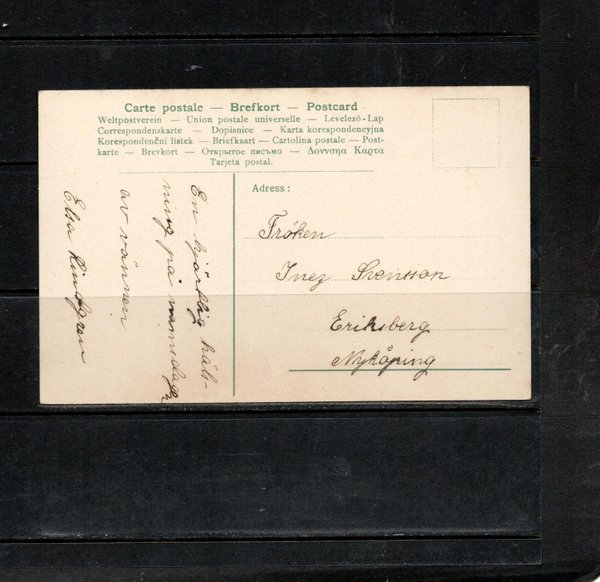 Carte postale — Brefkort — Postcard
Weltpostverein — Union postale universelle — Levelező-Lap
Correspondenzkarte — Dopisnice — Karta korespondencyjna
Korespondenční lístek — Briefkaart — Cartolina postale — Post-
karte — Brevkort — Открытое письмо — Δουνσηα Καρτα
Tarjeta postal.
En hjärtlig häls-
ning på namnsdagen
av vännen
Elsa Lindgren
Adress:
Fröken
Inez Svensson
Eriksberg
Nyköping